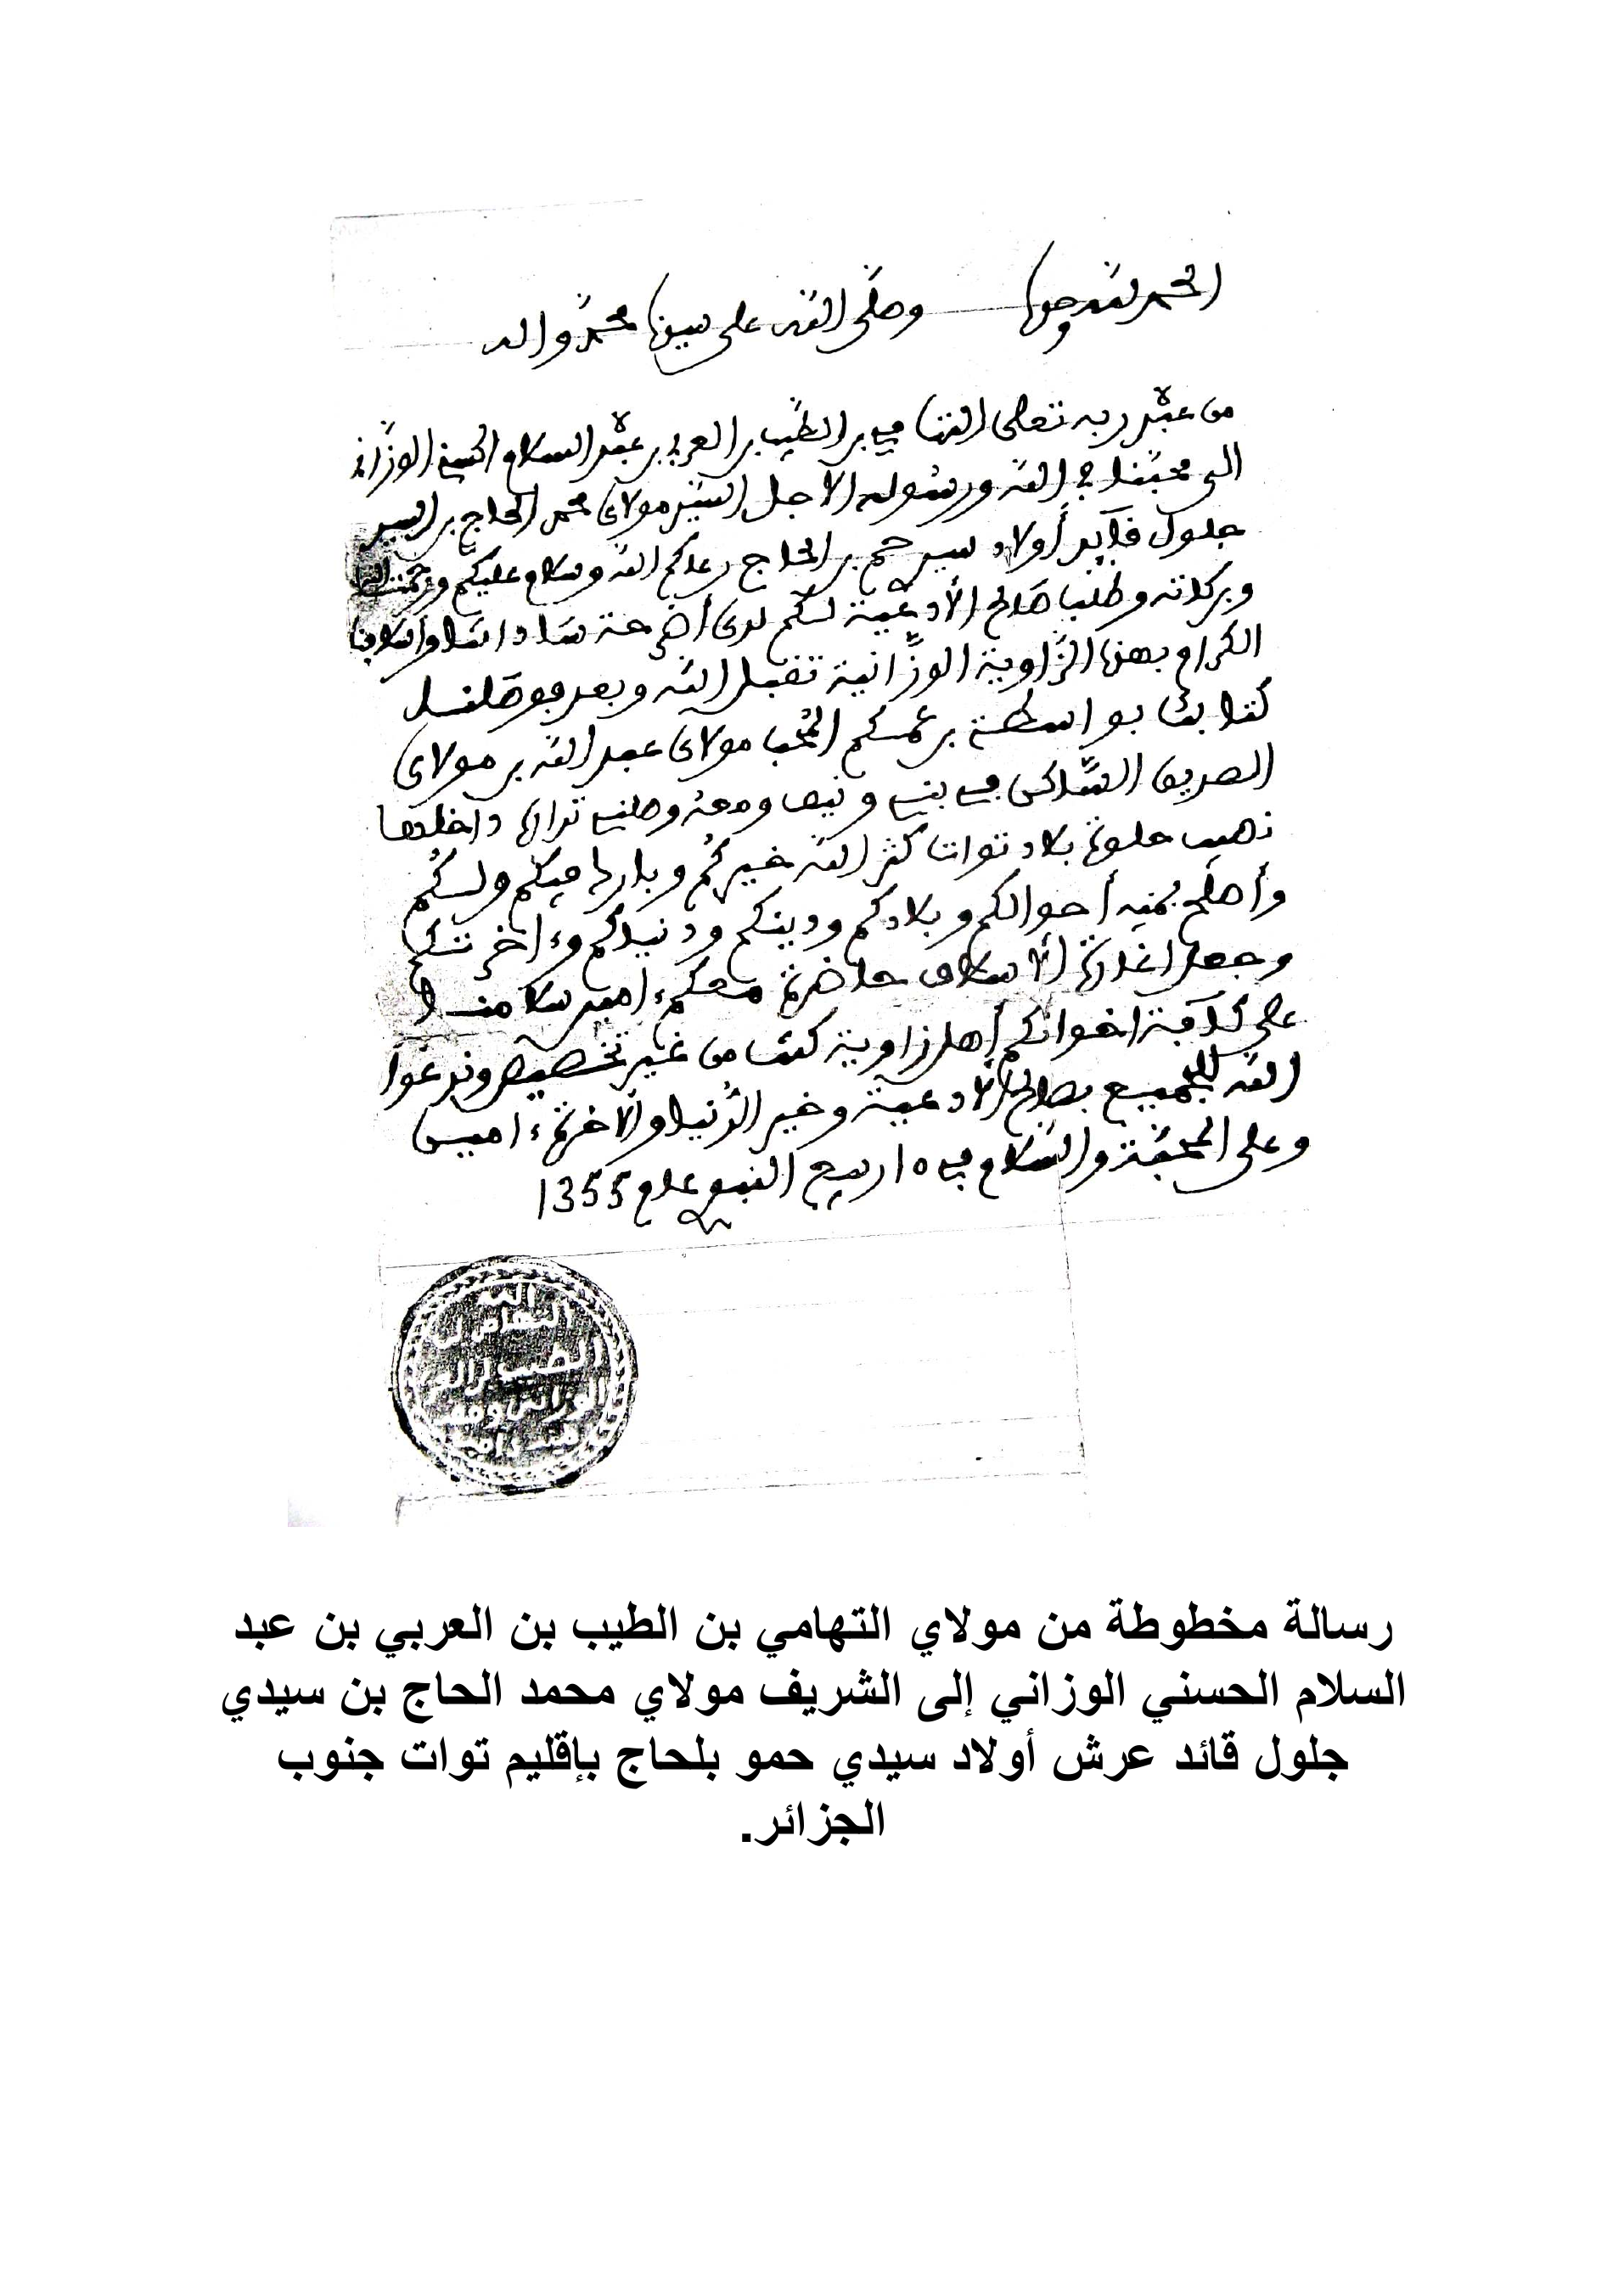 الحمد لله وحده وصلى الله على سيدنا محمد واله
من عبد ربه تعلى التهامي بن الطيب بن العربي بن عبد السلام الحسني الوزاني
الى محبنا في الله ورسوله الاجل السيد مولاي محمد الحاج بن السيد
جلول قايد أولاد سيد حم بن الحاج رعاكم الله وسلام عليكم ورحمت الله
وبركاته وطلب صالح الأدعية لكم لدى أضرحة ساداتنا وأسلافنا
الكرام بهذه الزاوية الوزانية تقبل الله وبعد فوصلنا
كتابك بواسطة بن عمكم المحب مولاي عبد الله بن مولاي
الصديق الساكن في بني ونيف ومعه وصلني داخلها
بلاد توات كثر الله خيركم وبارك فيكم ولكم
وأصلح بمنه أحوالكم وبلادكم ودينكم ودنياكم وءاخرتكم
وجعل الأسلاف حاضرة معكم ءامين سلامنا
على كافة اخوانكم أهل زاوية كنت من غير تخصيص وندعوا
الله للجميع بصالح الأدعية وخير الدنيا والآخرة ءامين
وعلى المحبة والسلام في 15 ربيع النبوي عام 1355
التهامي بن
الطيب بن
الوزاني وفقه
رسالة مخطوطة من مولاي التهامي بن الطيب بن العربي بن عبد
السلام الحسني الوزاني إلى الشريف مولاي محمد الحاج بن سيدي
جلول قائد عرش أولاد سيدي حمو بلحاج بإقليم توات جنوب
الجزائر.